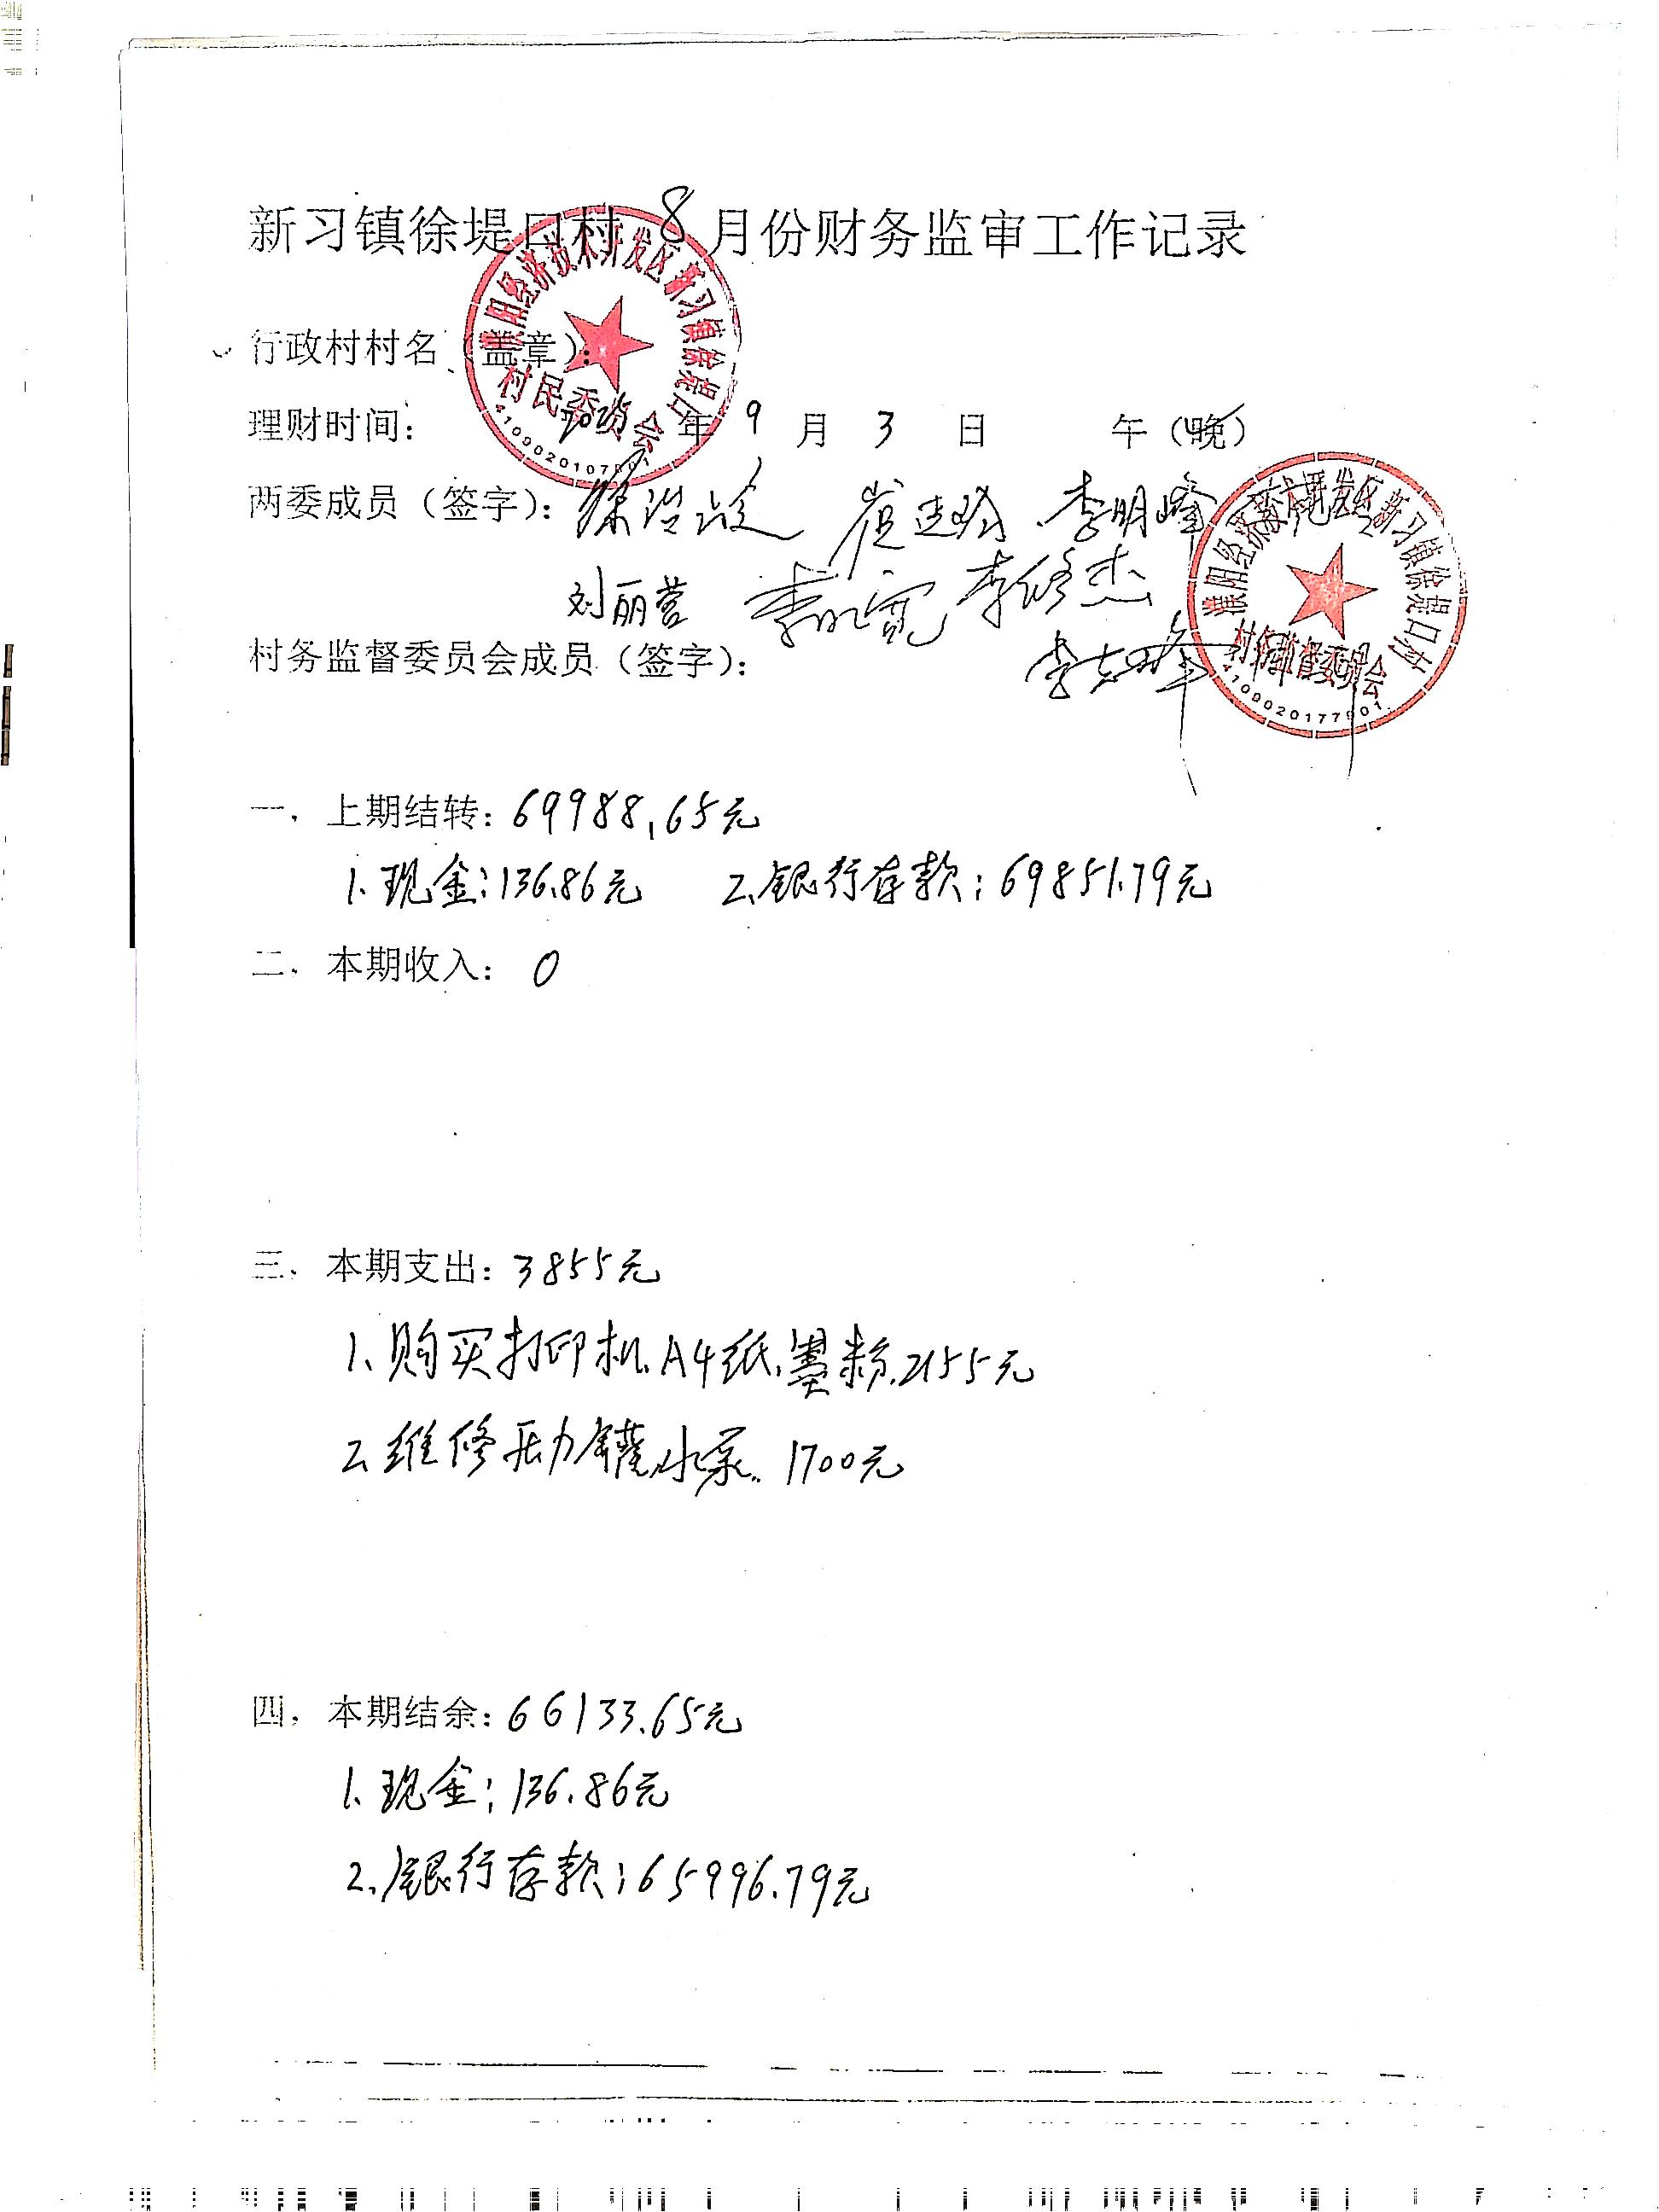 新习镇徐堤口村 8 月份财务监审工作记录
行政村村名（盖章）：
濮阳经济技术开发区新习镇徐堤口
村民委员会
理财时间： 年 9 月 3 日 午（晚）
两委成员（签字）： 李明峰
刘丽营 李修杰
濮阳经济技术开发区新习镇徐堤口村
村务监督委员会
村务监督委员会成员（签字）：
一、上期结转：69988.65元
1、现金：136.86元 2、银行存款：69851.79元
二、本期收入： 0
三、本期支出：3855元
1、购买打印机、A4纸、墨粉、2155元
2、维修压力罐、水泵、1700元
四、本期结余：66133.65元
1、现金：136.86元
2、银行存款：65996.79元